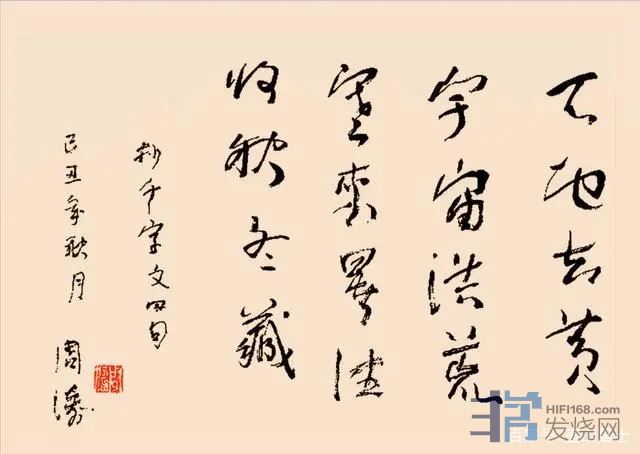 天地玄黄
宇宙洪荒
寒来暑往
收秋冬藏
抄千字文四句
己丑年秋月
周涛
HIFI168.com
发烧网